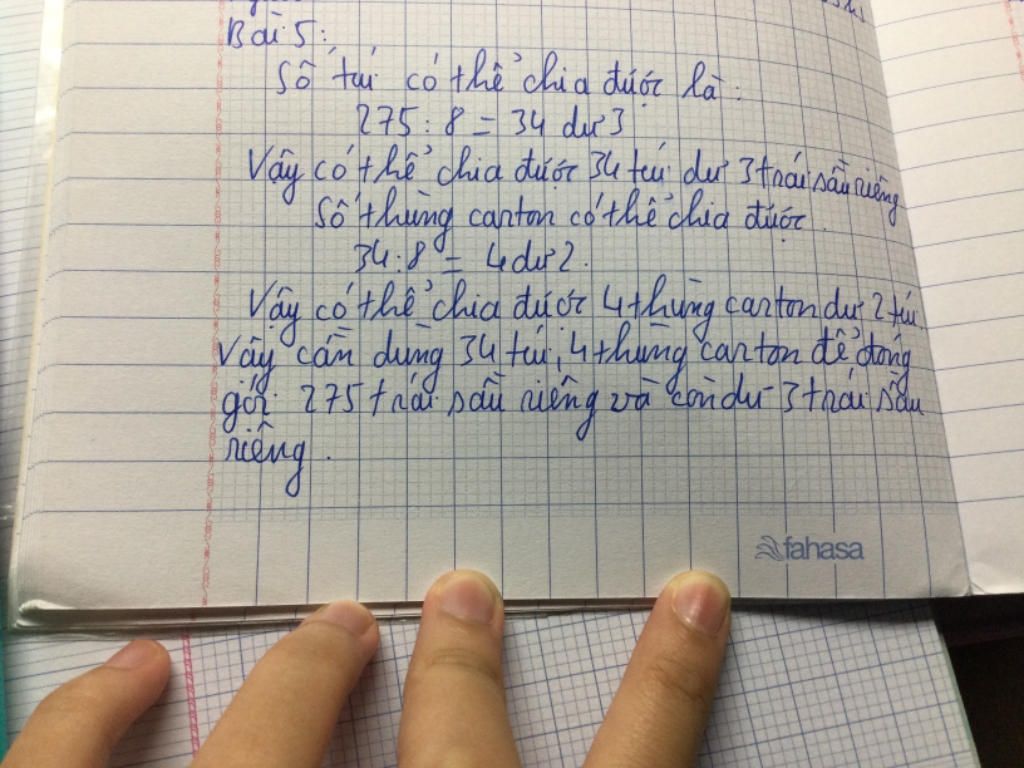 Bài 5:
Số túi có thể chia được là:
275 : 8 = 34 dư 3
Vậy có thể chia được 34 túi dư 3 trái sầu riêng
Số thùng carton có thể chia được.
34 : 8 = 4 dư 2.
Vậy có thể chia được 4 thùng carton dư 2 túi
Vậy cần dùng 34 túi, 4 thùng carton để đóng
gói 275 trái sầu riêng và còn dư 3 trái sầu
riêng.
fahasa